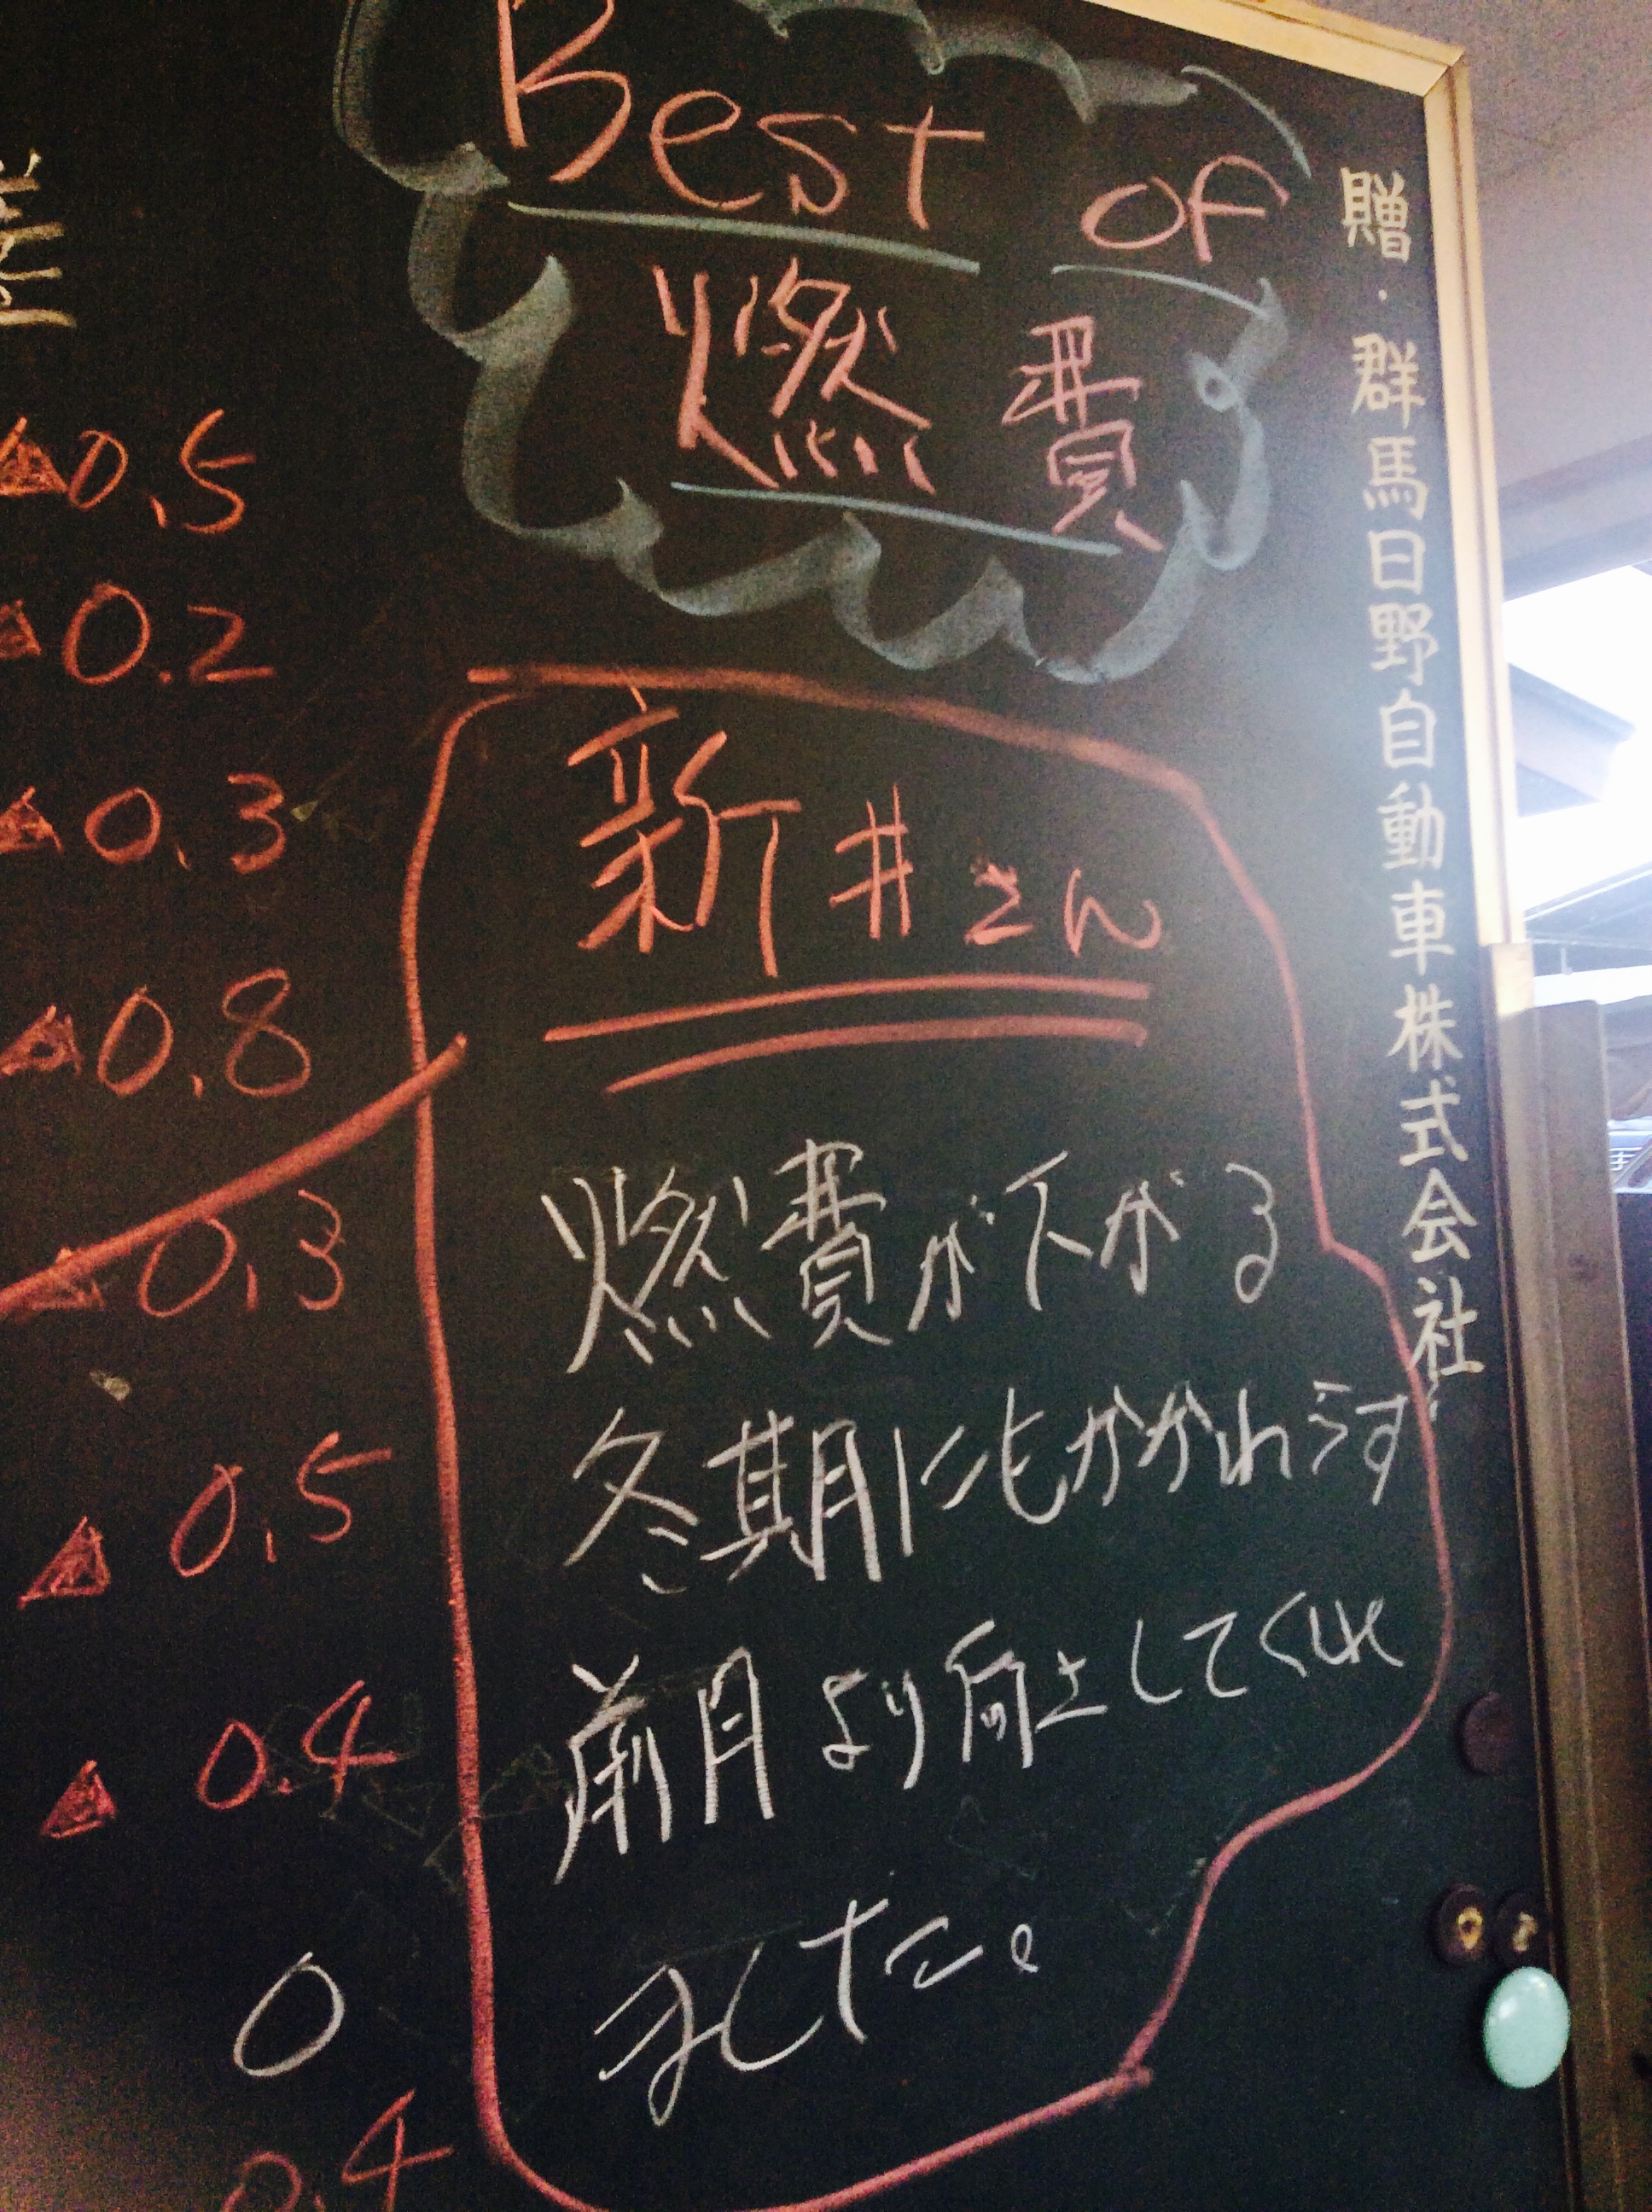 Best of
燃費
差
▲0.5
▲0.2
▲0.3
▲0.8
▲0.3
▲0.5
▲0.4
0
0.4
新井さん
燃費が下がる
冬期にもかかわらず
前月より向上してくれ
ました。
贈・群馬日野自動車株式会社